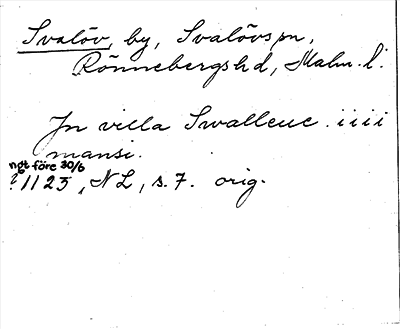 Svalöv, by, Svalövs sn,
Rönnebergs hd, Malm. l.
In villa Swalleue . iiii
mansi.
ngt före 30/6
? 1123, NL, s. 7. orig.